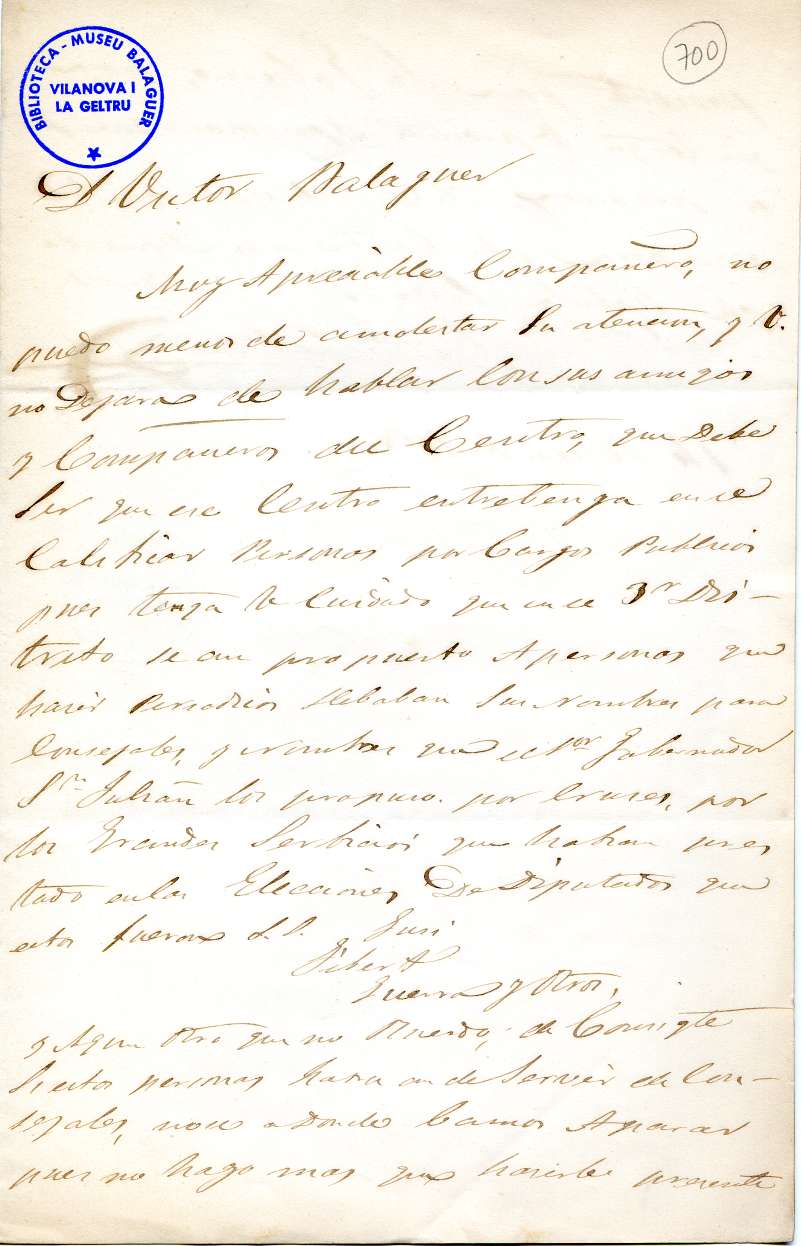 BIBLIOTECA - MUSEU BALAGUER
VILANOVA I
LA GELTRU
700
D Victor Balaguer
Muy Apreciable Compañero, no
puedo menos de amolestar su atencion, y V.
no Dejara de hablar con sus amigos
y Compañeros del Centro, que Debe
ser que ese Centro entretenga en se
Calificar Personas por Cargos Publicos
pues tenga V cuidado que en ese 3r Dis-
trito se an propuesto Apersonas que
Periodicos llebaban sus nombres para
Consejales, y nombres que el Sor Gobernador
Sn Julián los propuso por Cruses, por
los Grandes Serbicios que habian pres
tado en las Elecciones De Diputados que
estos fueron
Gibert
Guerra y Otros,
y Algun Otro que no Recuerdo, de Consigte
si estos personas an de Servir de Con-
sejales, no se a Donde bamos Aparar
pues no hago mas que hacerle presente